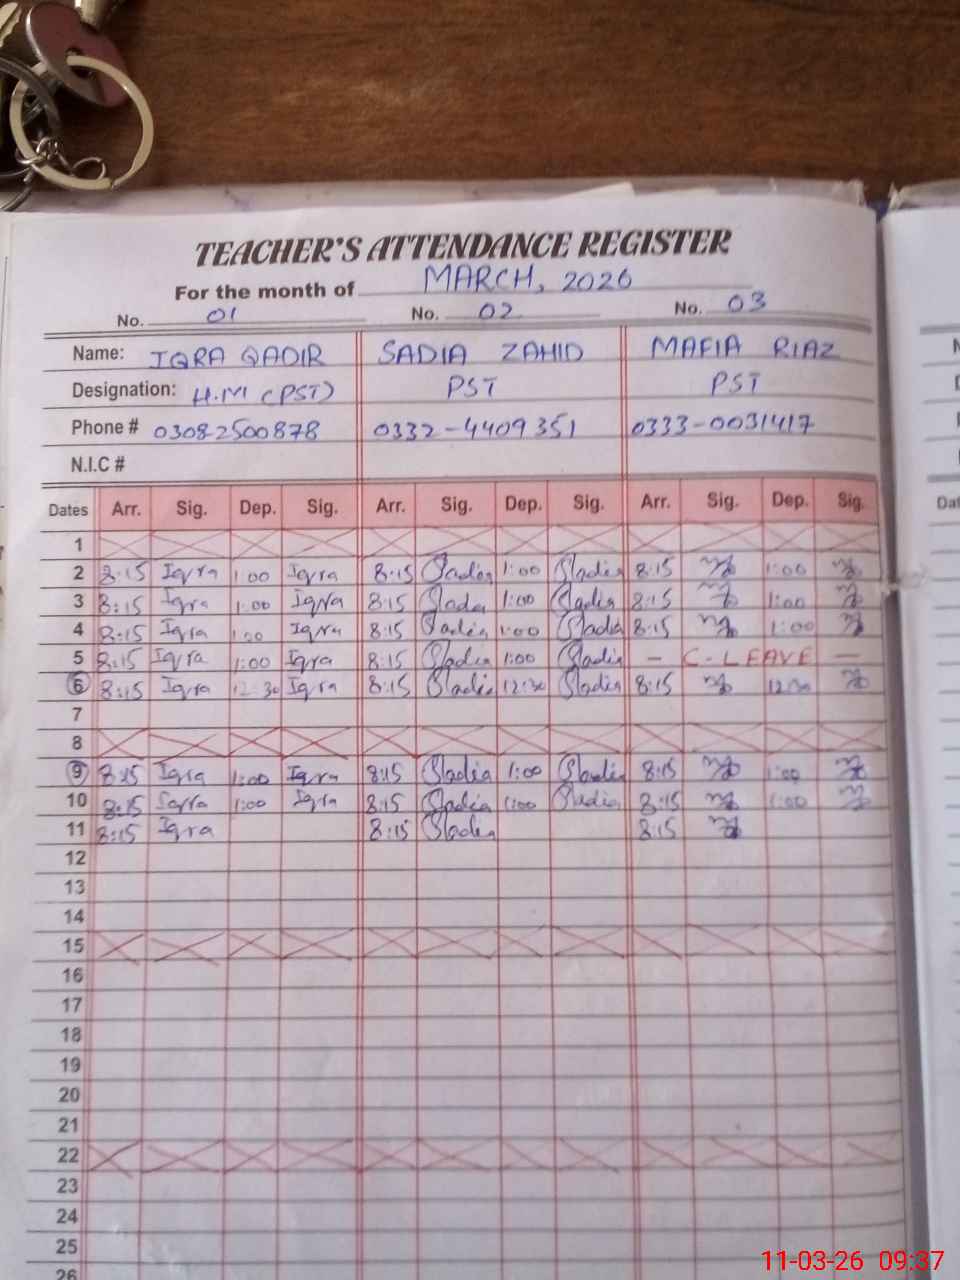 TEACHER'S ATTENDANCE REGISTER
For the month of MARCH, 2026
No. 01 No. 02 No. 03
Name: IQRA QADIR SADIA ZAHID MAFIA RIAZ
Designation: H.M (PST) PST PST
Phone # 0308-2500878 0332-4409351 0333-0031417
N.I.C #
Dates Arr. Sig. Dep. Sig. Arr. Sig. Dep. Sig. Arr. Sig. Dep. Sig. Dat
1
2 8:15 Iqra 1:00 Iqra 8:15 Sadia 1:00 Sadia 8:15 1:00
3 8:15 Iqra 1:00 Iqra 8:15 Sadia 1:00 Sadia 8:15 1:00
4 8:15 Iqra 1:00 Iqra 8:15 Sadia 1:00 Sadia 8:15 1:00
5 8:15 Iqra 1:00 Iqra 8:15 Sadia 1:00 Sadia - C-LEAVE -
6 8:15 Iqra 12:30 Iqra 8:15 Sadia 12:30 Sadia 8:15 12:30
7
8
9 8:15 Iqra 1:00 Iqra 8:15 Sadia 1:00 Sadia 8:15 1:00
10 8:15 Iqra 1:00 Iqra 8:15 Sadia 1:00 Sadia 8:15 1:00
11 8:15 Iqra 8:15 Sadia 8:15
12
13
14
15
16
17
18
19
20
21
22
23
24
25
26
11-03-26 09:37